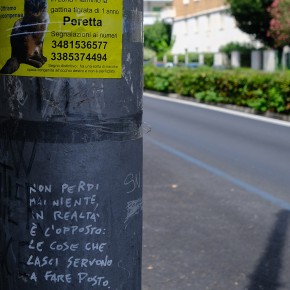 gattina tigrata di 1 anno
Poretta
Segnalazioni ai numeri
3481536577
3385374494
NON PERDI
MAI NIENTE,
IN REALTÀ
È L'OPPOSTO:
LE COSE CHE
LASCI SERVONO
A FARE POSTO.